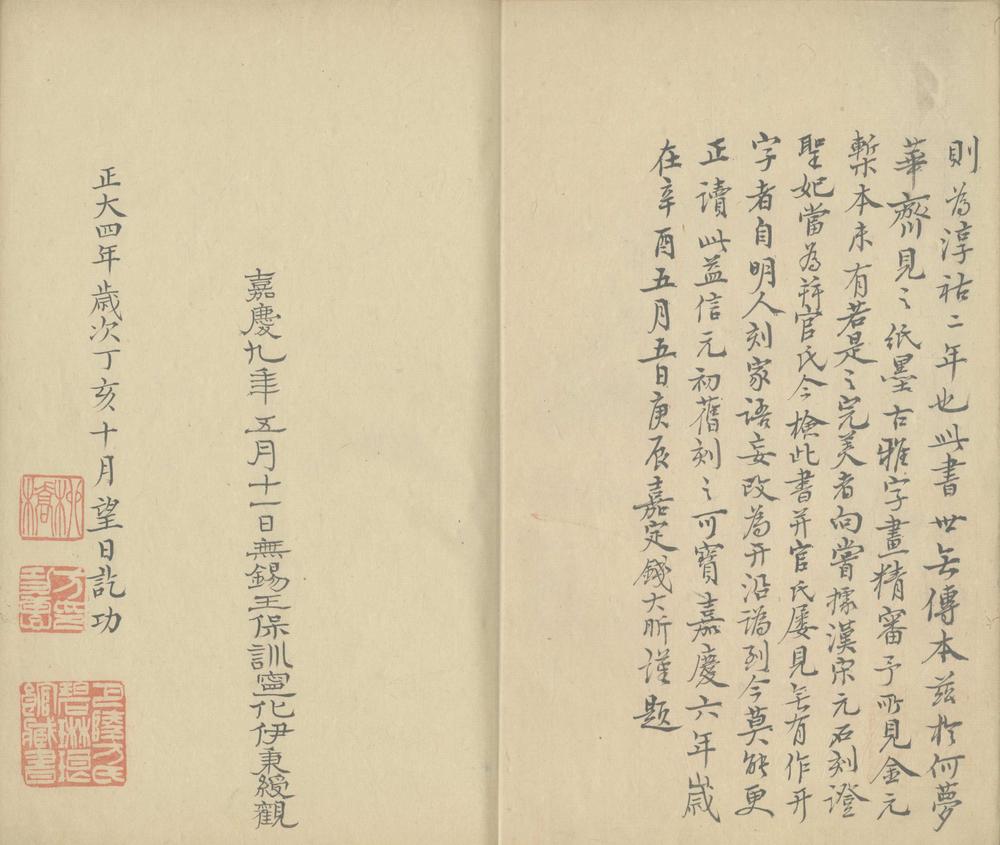 則為淳祐二年也此書世無傳本茲於何夢
華齋見之紙墨古雅字畫精審予所見金元
槧本未有若是之完美者向嘗據漢宋元石刻證
聖妃當為并官氏今檢此書并官氏屢見無有作开
字者自明人刻家語妄改為开沿譌到今莫能更
正讀此益信元初舊刻之可寶嘉慶六年歲
在辛酉五月五日庚辰嘉定錢大昕謹題
嘉慶九年五月十一日無錫王保訓寧化伊秉綬觀
正大四年歲次丁亥十月望日訖功
柳橋
方功惠印
巴陵方氏碧琳琅館藏書